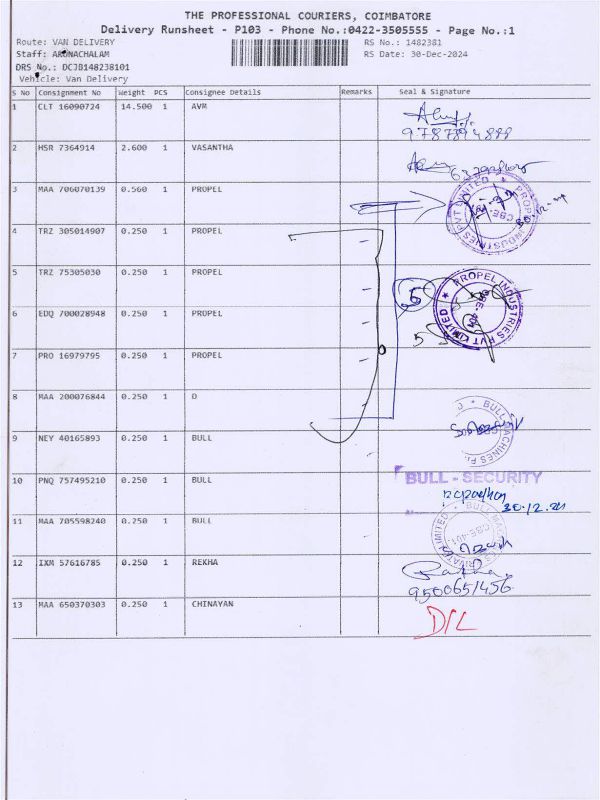 THE PROFESSIONAL COURIERS, COIMBATORE
Delivery Runsheet - P103 - Phone No.:0422-3505555 - Page No.:1
Route: VAN DELIVERY RS No.: 1482381
Staff: ARUNACHALAM RS Date: 30-Dec-2024
DRS No.: DCJB148238101
Vehicle: Van Delivery
S No Consignment No Weight PCS Consignee Details Remarks Seal & Signature
1 CLT 16090724 14.500 1 AVM
2 HSR 7364914 2.600 1 VASANTHA
3 MAA 706070139 0.560 1 PROPEL
PROPEL INDUSTRIES PVT LIMITED
4 TRZ 305014907 0.250 1 PROPEL
5 TRZ 75305030 0.250 1 PROPEL
PROPEL INDUSTRIES PVT LIMITED
6 EDQ 700028948 0.250 1 PROPEL
7 PRO 16979795 0.250 1 PROPEL
8 MAA 200076844 0.250 1 O
9 NEY 40165893 0.250 1 BULL
10 PNQ 757495210 0.250 1 BULL BULL - SECURITY
30.12.24
11 MAA 705598240 0.250 1 BULL
12 IXM 57616785 0.250 1 REKHA
9500651456
13 MAA 650370303 0.250 1 CHINAYAN D/L